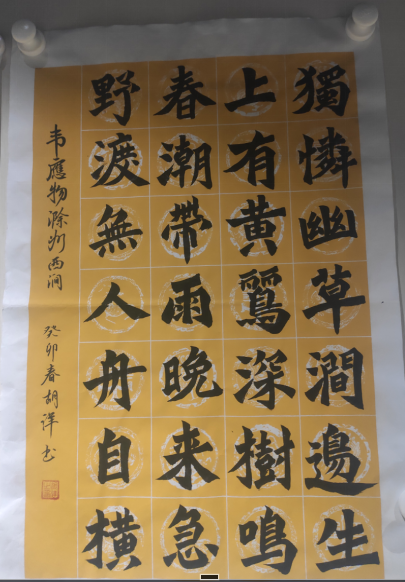 獨憐幽草澗邊生
上有黄鸝深樹鳴
春潮帶雨晚来急
野渡無人舟自横
韦應物滁州西涧
癸卯春胡书